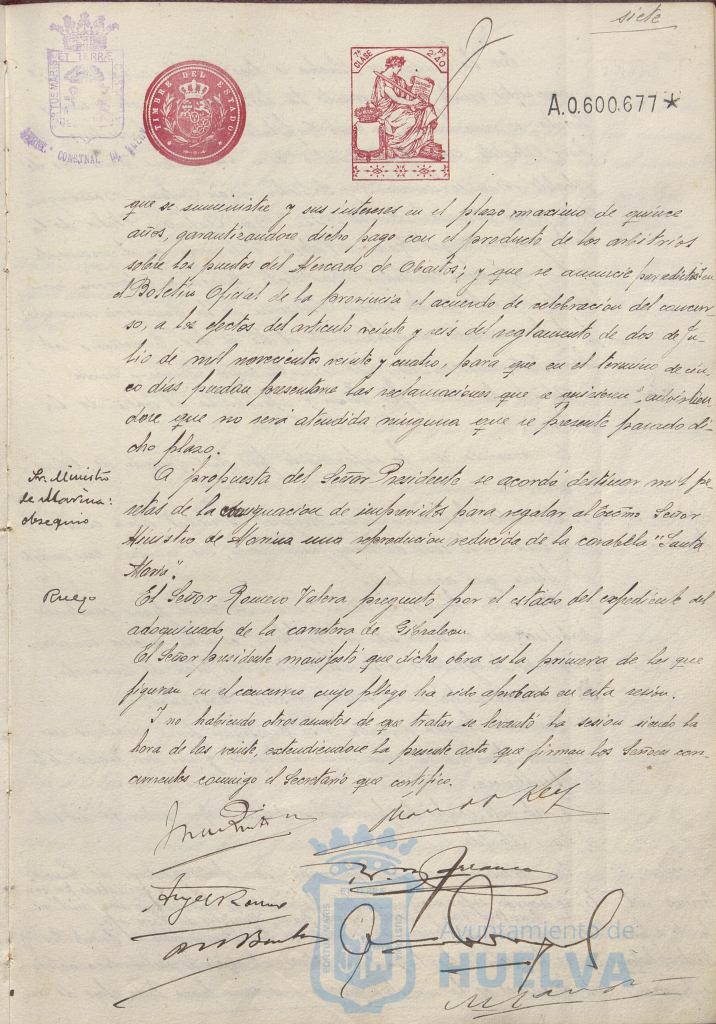 siete
ET TERRÆ
TIMBRE DEL ESTADO
7ª CLASE
Pts 2'40
A.0.600.677 *
que se suministre y sus intereses en el plazo maximo de quince
años, garantizandose dicho pago con el producto de los arbitrios
sobre los puestos del Mercado de Abastos; y que se anuncie por edictos en
el Boletin Oficial de la provincia el acuerdo de celebracion del concur-
so, a los efectos del articulo veinte y seis del reglamento de dos de Ju-
lio de mil novecientos veinte y cuatro, para que en el termino de cin-
co dias puedan presentarse las reclamaciones que se quisieren, advirtien-
dose que no será atendida ninguna que se presente pasado di-
cho plazo.
Sr. Ministro
de Marina:
obsequio
A propuesta del Señor Presidente se acordó destinar mil pe-
setas de la consignacion de imprevistos para regalar al Excmo Señor
Ministro de Marina una reproduccion reducida de la carabela "Santa
Maria".
Ruego
El Señor Romero Valera pregunto por el estado del expediente del
adoquinado de la carretera de Gibraleon.
El Señor presidente manifestó que dicha obra es la primera de las que
figuran en el concurso cuyo pliego ha sido aprobado en esta sesion.
I no habiendo otros asuntos de que tratar se levantó la sesion siendo la
hora de las veinte, extendiendose la presente acta que firman los Señores con-
currentes conmigo el Secretario que certifico.
Ayuntamiento de
HUELVA